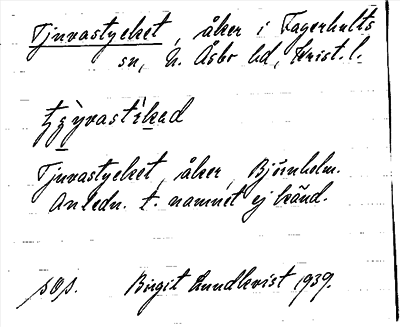 Tjuvastycket, åker i Fagerhults
sn, N. Åsbo hd, Krist. l.
Tjuvastycket, åker, Björnholm.
Anledn. t. namnet ej känd.
Birgit Lundkvist 1939.